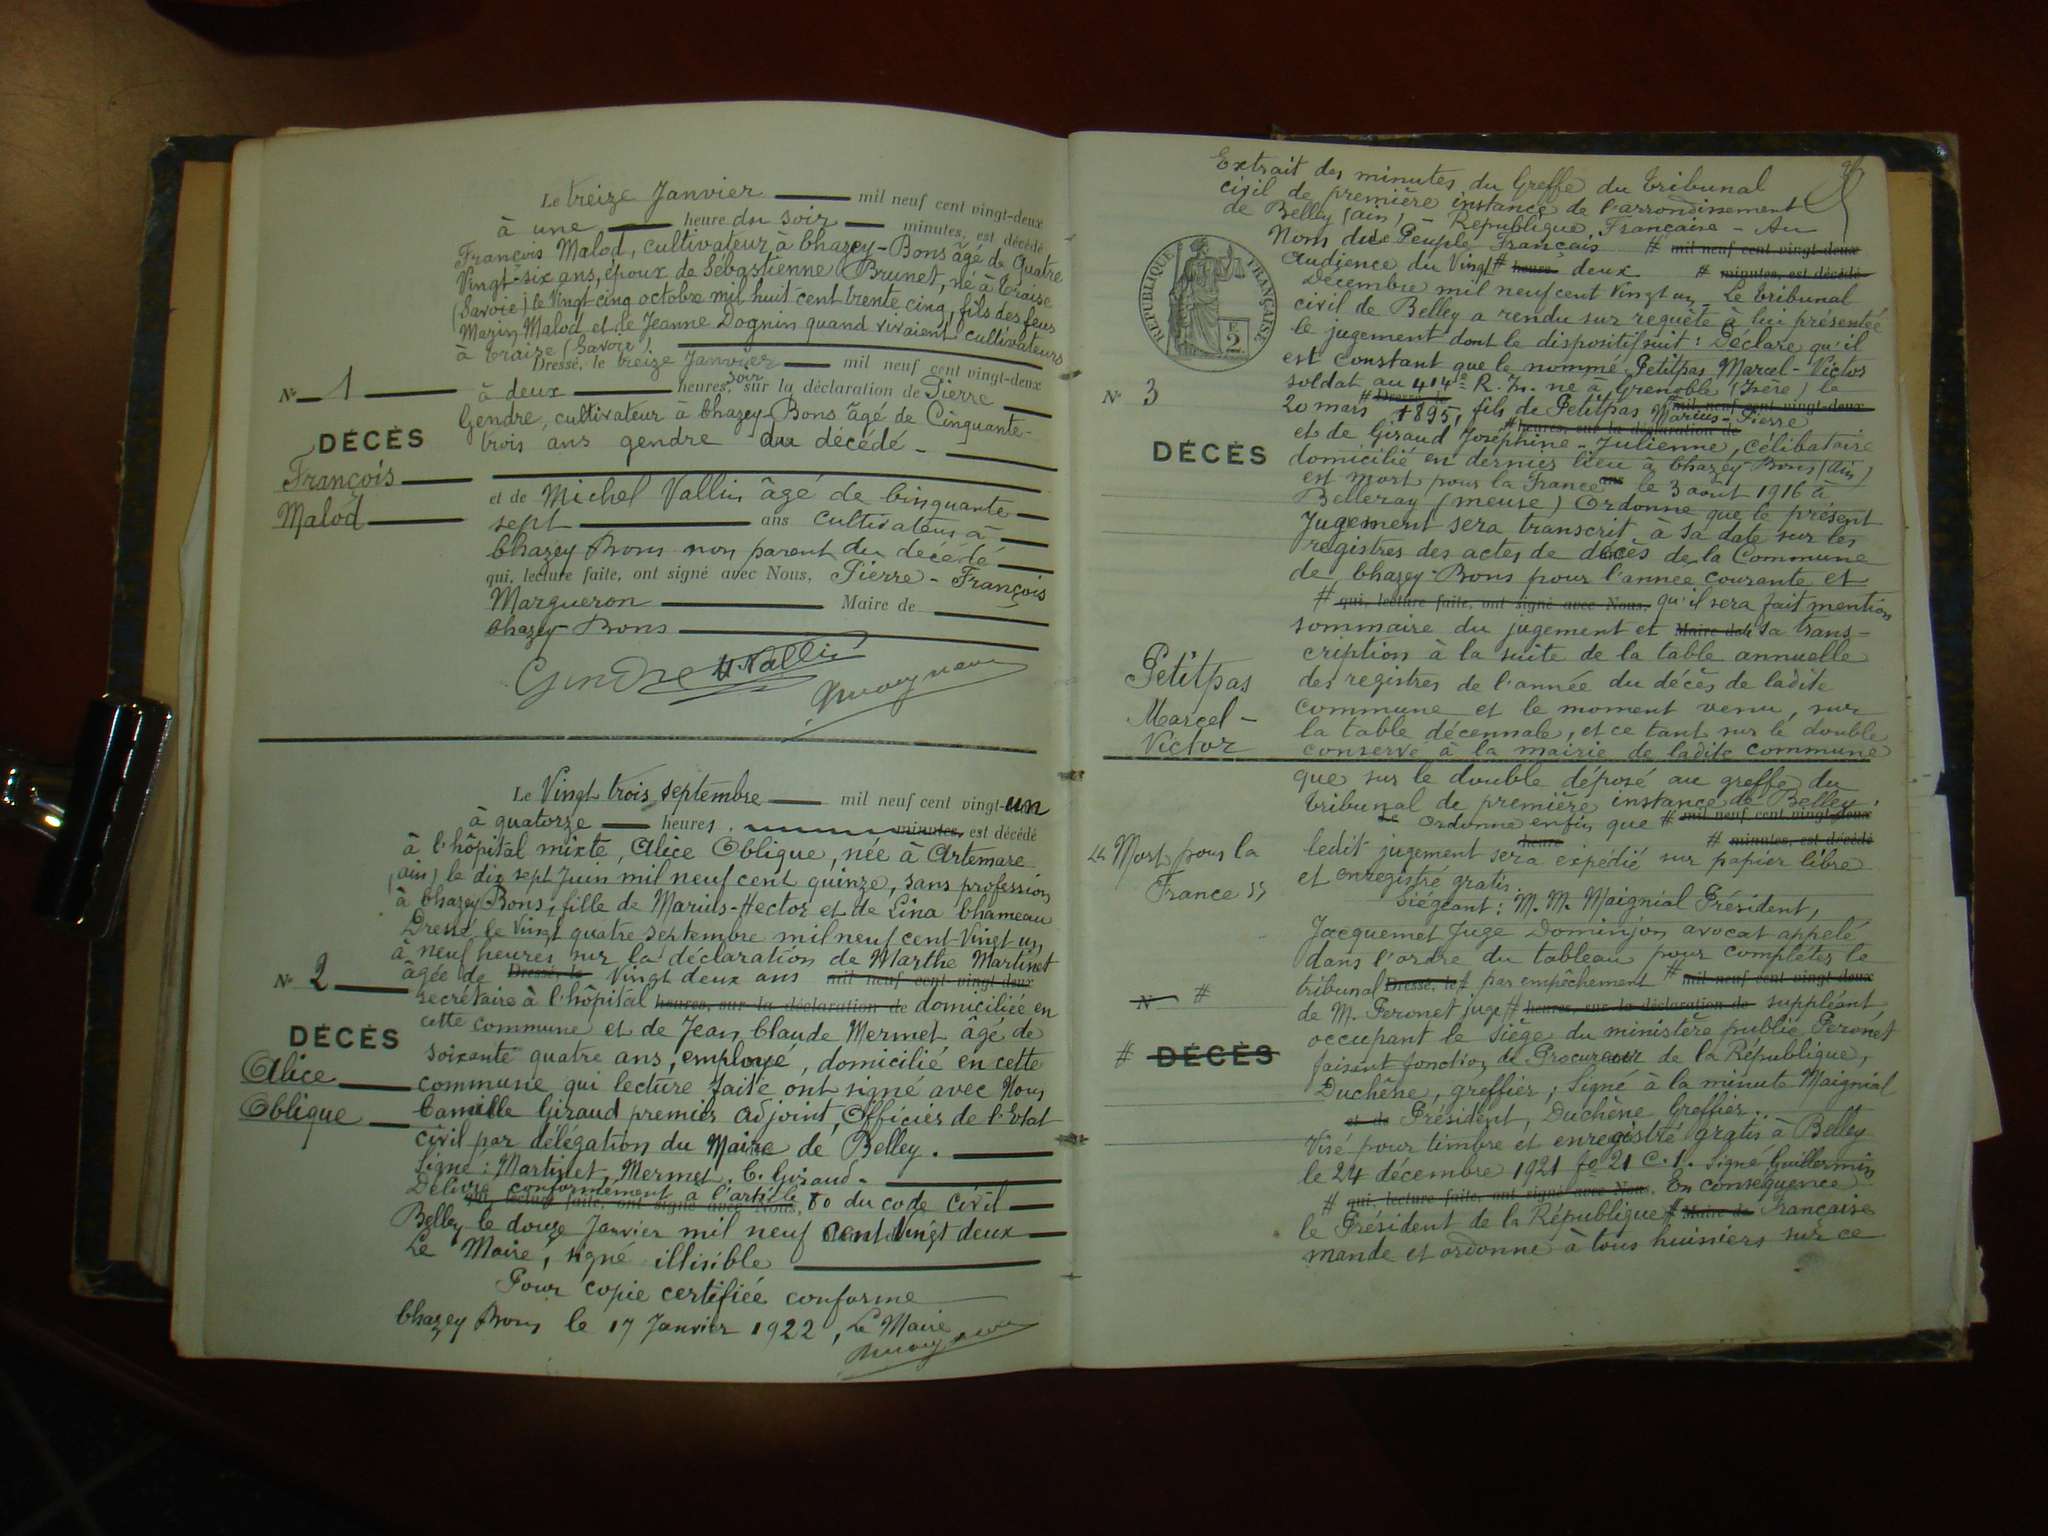 Le treize Janvier mil neuf cent vingt-deux
à une heure du soir minutes, est décédé
François Malod, cultivateur à Chazey-Bons âgé de Quatre
Vingt-six ans, époux de Sébastienne Brunet, né à Traise
(Savoie) le Vingt cinq octobre mil huit cent trente cinq, fils des feus
Marin Malod et de Jeanne Dognin quand vivaient cultivateurs
à Traise (Savoie)
Dressé, le treize Janvier mil neuf cent vingt-deux
à deux heures, soir sur la déclaration de Pierre
Gendre, cultivateur à Chazey-Bons âgé de Cinquante-
trois ans gendre du décédé -
et de Michel Vallin âgé de Cinquante
sept ans cultivateur à
Chazey Bons non parent du décédé
qui, lecture faite, ont signé avec Nous, Pierre-François
Margueron Maire de
Chazey Bons
Gendre M. Vallin
N° 1
DÉCÈS
François
Malod
Le Vingt trois septembre mil neuf cent vingt-un
à quatorze heures, minutes, est décédé
à l'hôpital mixte, Alice Oblique, née à Artemare
(ain) le dix sept Juin mil neuf cent quinze, sans profession
à Chazey Bons, fille de Marius-Hector et de Lina Chameau
Dressé le Vingt quatre septembre mil neuf cent Vingt un
à neuf heures sur la déclaration de Marthe Martinet
âgée de Dressé, le Vingt deux ans mil neuf cent vingt-deux
secrétaire à l'hôpital heures, sur la déclaration de domiciliée en
cette commune et de Jean Claude Mermet âgé de
soixante quatre ans, employé, domicilié en cette
commune qui lecture faite ont signé avec Nous
Camille Giraud premier adjoint, Officier de l'Etat
civil par délégation du Maire de Belley.
Signé : Martinet, Mermet. C. Giraud.
Délivré conformément à l'article 80 du code civil
qui, lecture faite, ont signé avec Nous,
Belley le douze Janvier mil neuf cent Vingt deux
Le Maire, signé illisible
Pour copie certifiée conforme
Chazey Bons le 17 Janvier 1922, Le Maire
N° 2
DÉCÈS
Alice
Oblique
Extrait des minutes du Greffe du tribunal
civil de première instance de l'arrondissement
de Belley (ain) - République Française - Au
Nom du Peuple Français # mil neuf cent vingt-deux
Audience du Vingt # heure deux # minutes, est décédé
Décembre mil neuf cent Vingt un - Le tribunal
civil de Belley a rendu sur requête à lui présentée
le jugement dont le dispositif suit : Déclare qu'il
est constant que le nommé Petitpas Marcel-Victor
soldat au 414e R. In. né à Grenoble (Isère) le
# Dressé, le # mil neuf cent vingt-deux
20 mars 1895, fils de Petitpas Marius-Pierre
# heures, sur la déclaration de
et de Giraud Joséphine-Julienne, célibataire
domicilié en dernier lieu à Chazey Bons (Ain)
est mort pour la France ans le 3 août 1916 à
Belleray (meuse) Ordonne que le présent
Jugement sera transcrit à sa date sur les
registres des actes de décès de la Commune
de Chazey-Bons pour l'année courante et
# qui, lecture faite, ont signé avec Nous, qu'il sera fait mention
sommaire du jugement et Maire de sa trans=
cription à la suite de la table annuelle
des registres de l'année du décès de ladite
commune et le moment venu, sur
la table décennale, et ce tant sur le double
conservé à la mairie de ladite commune
que sur le double déposé au greffe du
tribunal de première instance de Belley.
Le Ordonne enfin que # mil neuf cent vingt-deux
heure # minutes, est décédé
ledit jugement sera expédié sur papier libre
et enregistré gratis.
Siégeant : M. M. Maignial Président,
Jacquemet Juge Dominjon avocat appelé
dans l'ordre du tableau pour compléter le
tribunal Dressé, le # par empêchement # mil neuf cent vingt-deux
de M. Peronet juge # heures, sur la déclaration de suppléant
occupant le siège du ministère public, Peronet
faisant fonction de Procureur de la République,
Duchêne, greffier, Signé à la minute Maignial
et de Président, Duchêne Greffier..
Visé pour timbre et enregistré gratis à Belley
le 24 décembre 1921 fo 21 C. 1. Signé Guillermin
# qui, lecture faite, ont signé avec Nous, En conséquence
le Président de la République # Maire de Française
mande et ordonne à tous huissiers sur ce
RÉPUBLIQUE FRANÇAISE
2
N° 3
DÉCÈS
Petitpas
Marcel-
Victor
"Mort pour la
France"
N #
# DÉCÈS